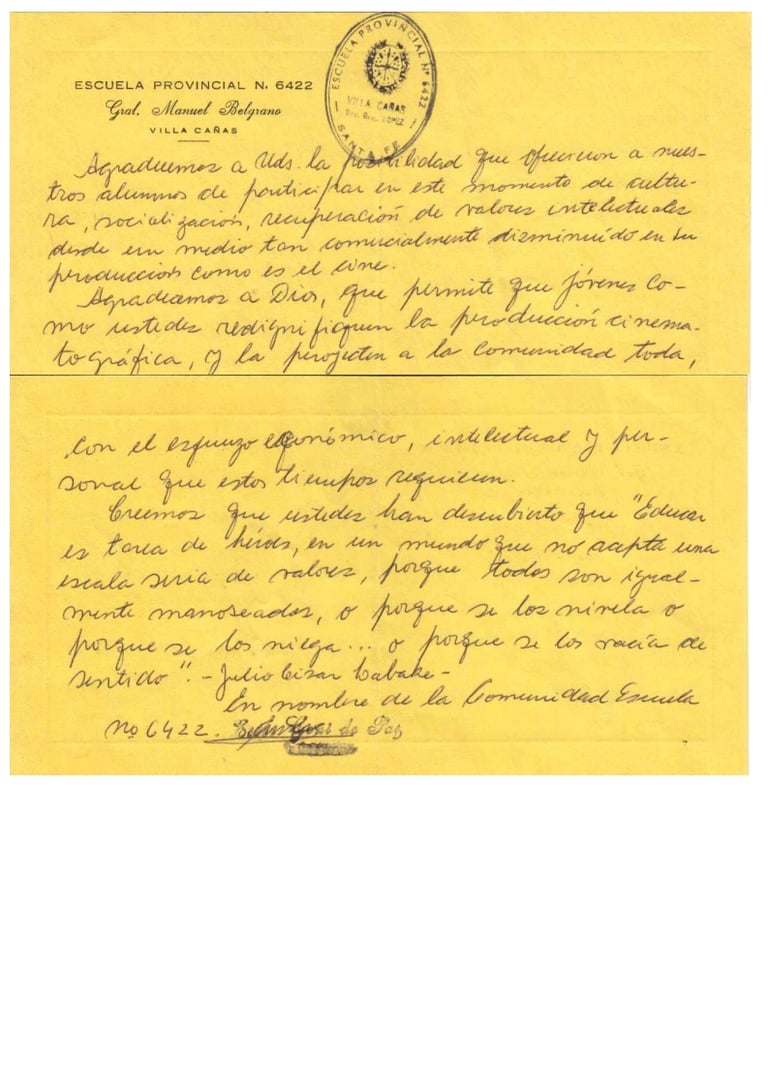 ESCUELA PROVINCIAL N. 6422
Gral. Manuel Belgrano
VILLA CAÑAS
ESCUELA PROVINCIAL Nº 6422
VILLA CAÑAS
Dto. Gral. LOPEZ
SANTA FE
Agradecemos a Uds. la posibilidad que ofrecieron a nues-
tros alumnos de participar en este momento de cultu-
ra, socialización, recuperación de valores intelectuales
desde un medio tan comercialmente dizminuído en su
producción como es el cine.
Agradecemos a Dios, que permite que jóvenes co-
mo ustedes redignifiquen la producción cinema-
tográfica, y la proyecten a la Comunidad toda,
con el esfuerzo económico, intelectual y per-
sonal que estos tiempos requieren.
Creemos que ustedes han descubierto que "Educar
es tarea de héroes, en un mundo que no acepta una
escala seria de valores, porque todos son igual-
mente manoseados, o porque se los nivela o
porque se los niega... o porque se los vacía de
sentido". - Julio César Labaké -
En nombre de la Comunidad Escuela
Nº 6422. de Paz